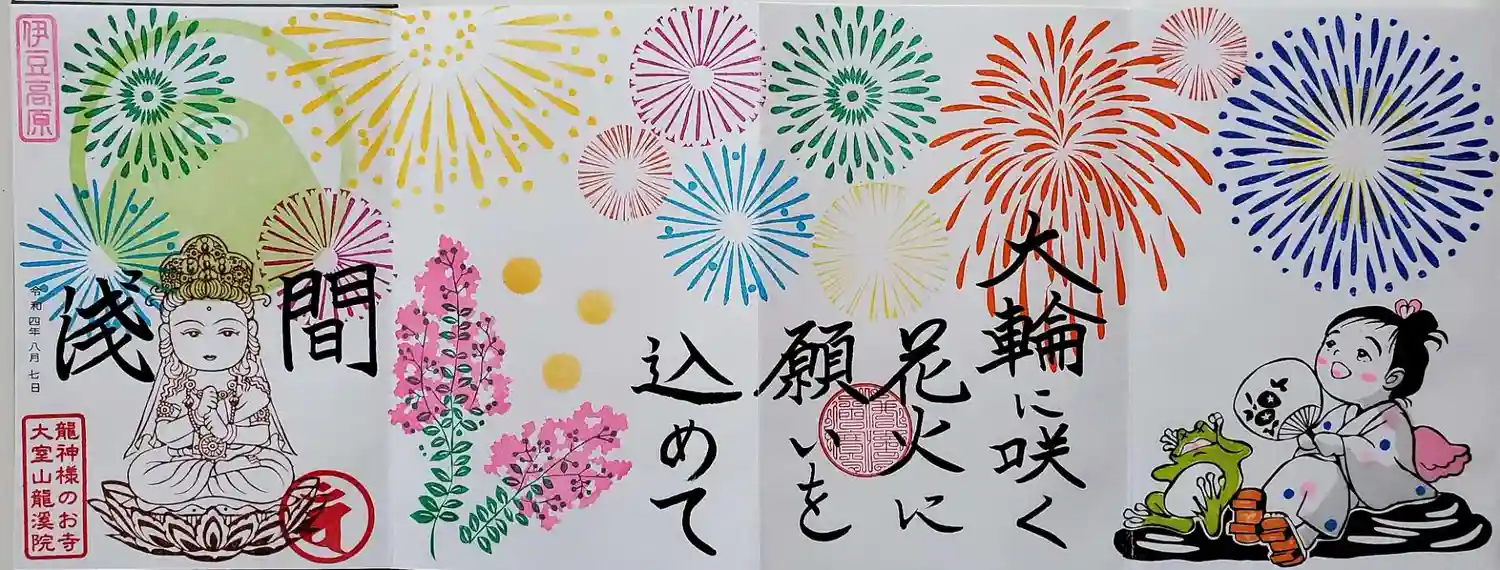 大輪に咲く
花火に
願いを
込めて
浅間
伊豆高原
令和四年八月七日
龍神様のお寺
大室山龍渓院